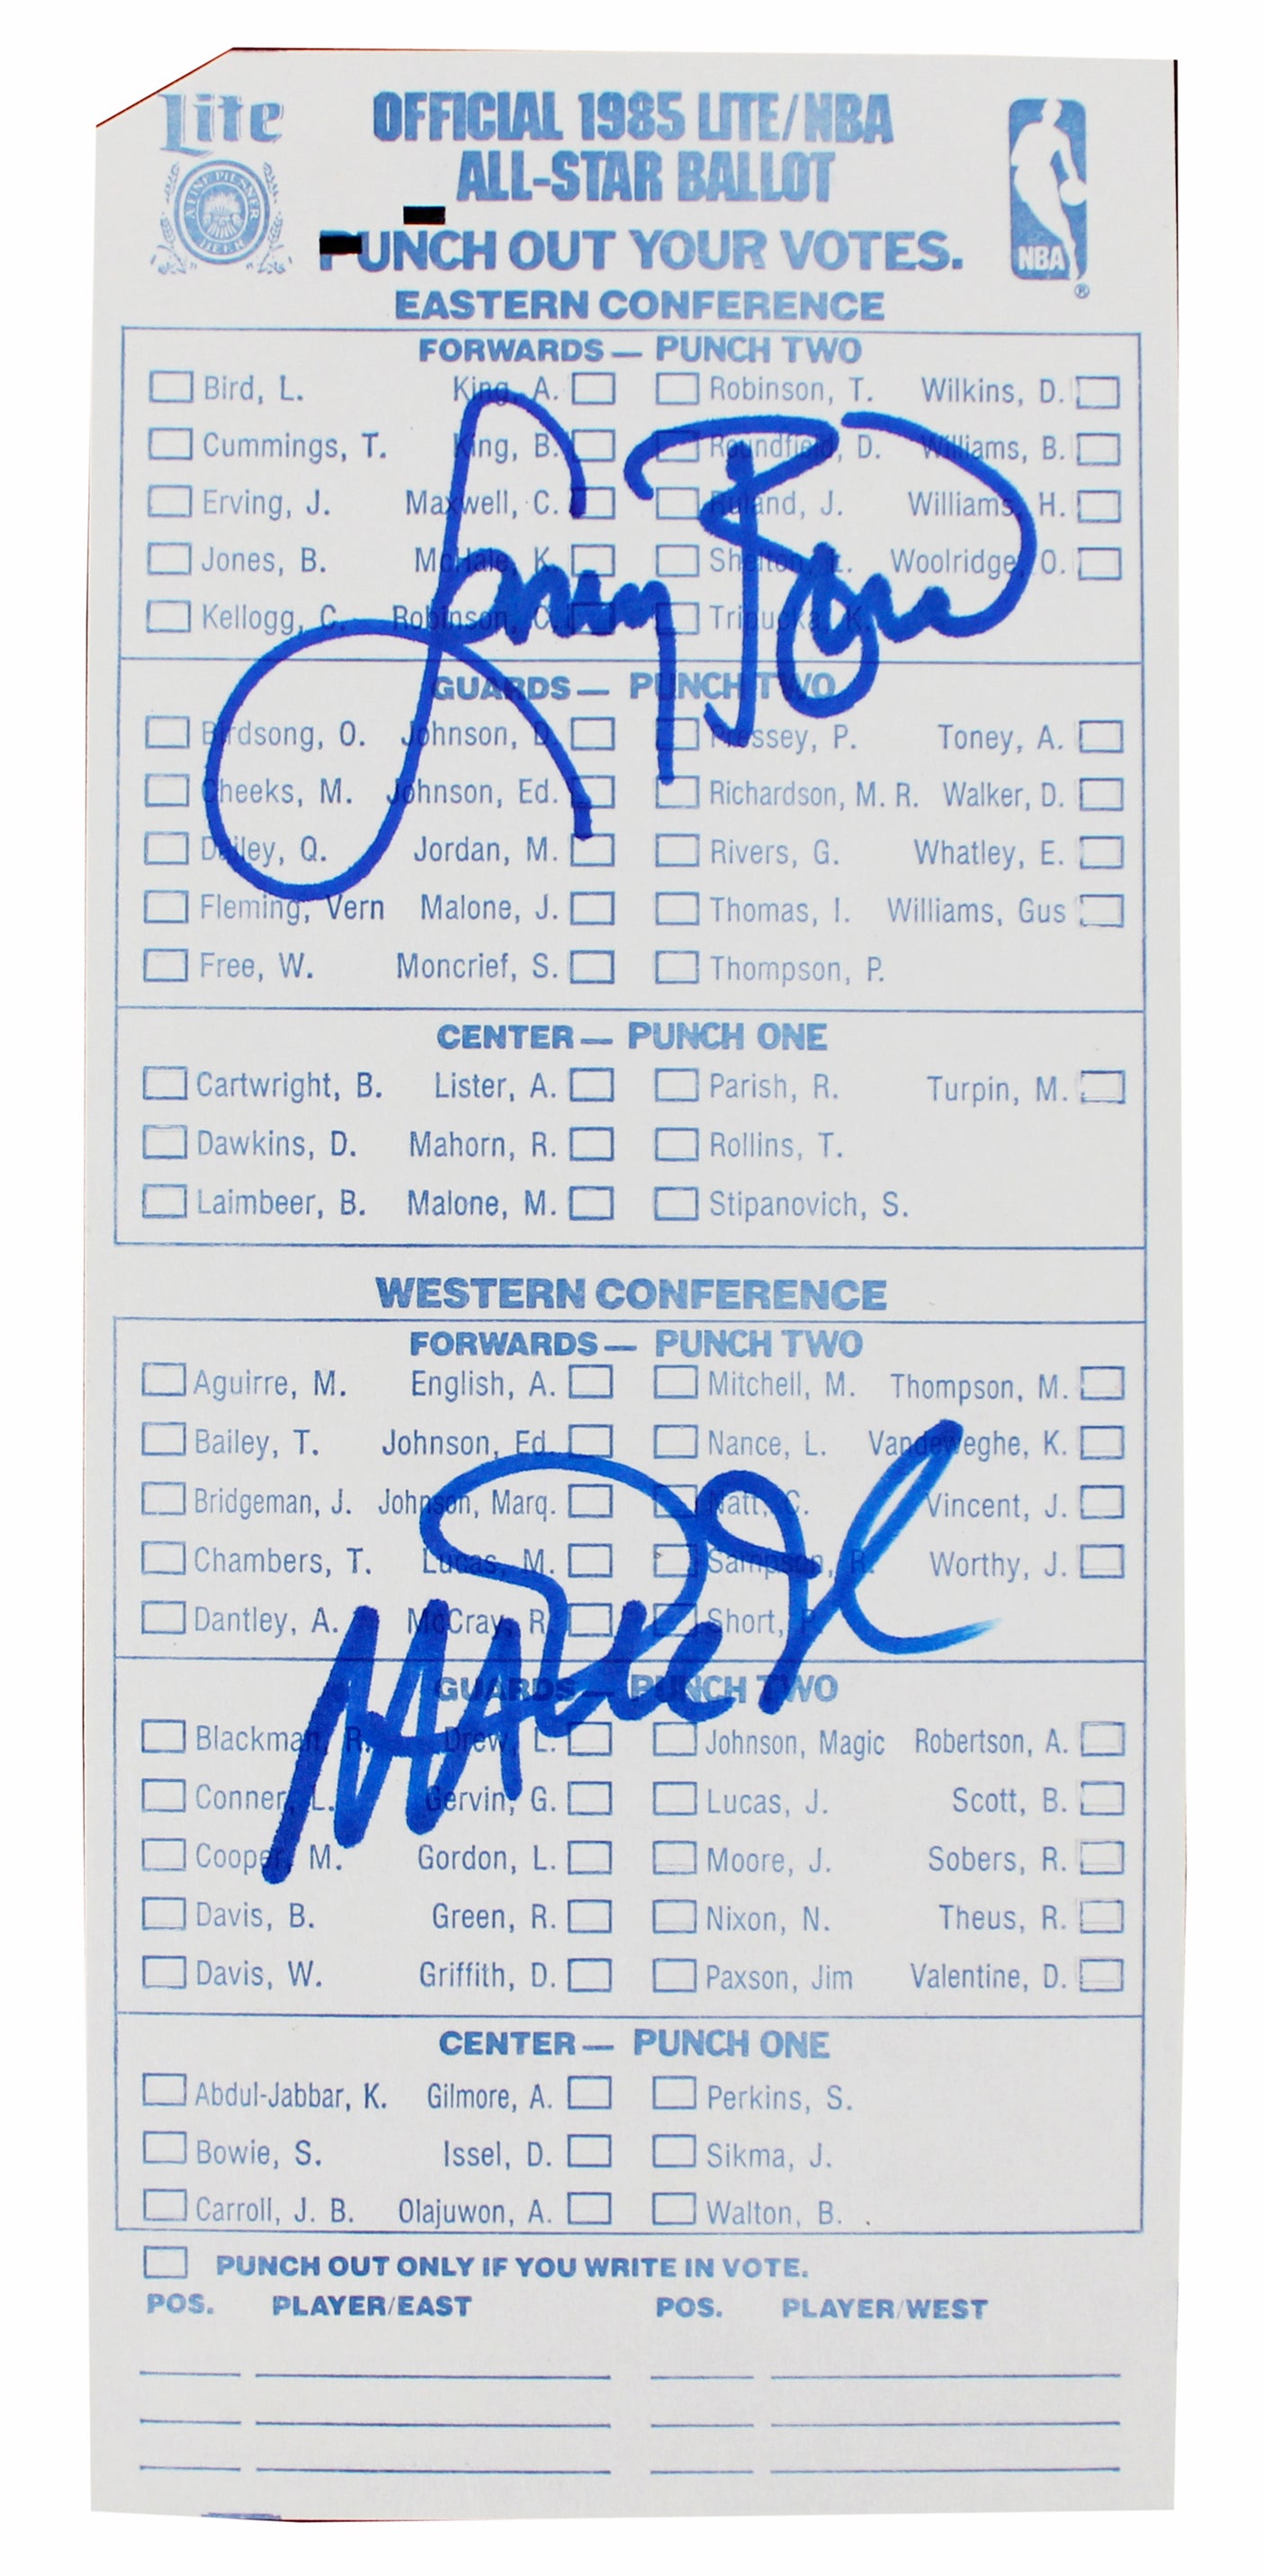 Lite
OFFICIAL 1985 LITE/NBA
ALL-STAR BALLOT
A FINE PILSNER BEER
NBA
®
PUNCH OUT YOUR VOTES.
EASTERN CONFERENCE
FORWARDS — PUNCH TWO
Bird, L. King, A. Robinson, T. Wilkins, D.
Cummings, T. King, B. Roundfield, D. Williams, B.
Erving, J. Maxwell, C. Ruland, J. Williams, H.
Jones, B. McHale, K. Shelton, L. Woolridge, O.
Kellogg, C. Robinson, C. Tripucka, K.
Larry Bird
GUARDS — PUNCH TWO
Birdsong, O. Johnson, D. Pressey, P. Toney, A.
Cheeks, M. Johnson, Ed. Richardson, M. R. Walker, D.
Dailey, Q. Jordan, M. Rivers, G. Whatley, E.
Fleming, Vern Malone, J. Thomas, I. Williams, Gus
Free, W. Moncrief, S. Thompson, P.
CENTER — PUNCH ONE
Cartwright, B. Lister, A. Parish, R. Turpin, M.
Dawkins, D. Mahorn, R. Rollins, T.
Laimbeer, B. Malone, M. Stipanovich, S.
WESTERN CONFERENCE
FORWARDS — PUNCH TWO
Aguirre, M. English, A. Mitchell, M. Thompson, M.
Bailey, T. Johnson, Ed. Nance, L. Vandeweghe, K.
Bridgeman, J. Johnson, Marq. Natt, C. Vincent, J.
Chambers, T. Lucas, M. Sampson, R. Worthy, J.
Dantley, A. McCray, R. Short, P.
GUARDS — PUNCH TWO
Blackman, R. Drew, L. Johnson, Magic Robertson, A.
Conner, L. Gervin, G. Lucas, J. Scott, B.
Cooper, M. Gordon, L. Moore, J. Sobers, R.
Davis, B. Green, R. Nixon, N. Theus, R.
Davis, W. Griffith, D. Paxson, Jim Valentine, D.
CENTER — PUNCH ONE
Abdul-Jabbar, K. Gilmore, A. Perkins, S.
Bowie, S. Issel, D. Sikma, J.
Carroll, J. B. Olajuwon, A. Walton, B.
PUNCH OUT ONLY IF YOU WRITE IN VOTE.
POS. PLAYER/EAST POS. PLAYER/WEST